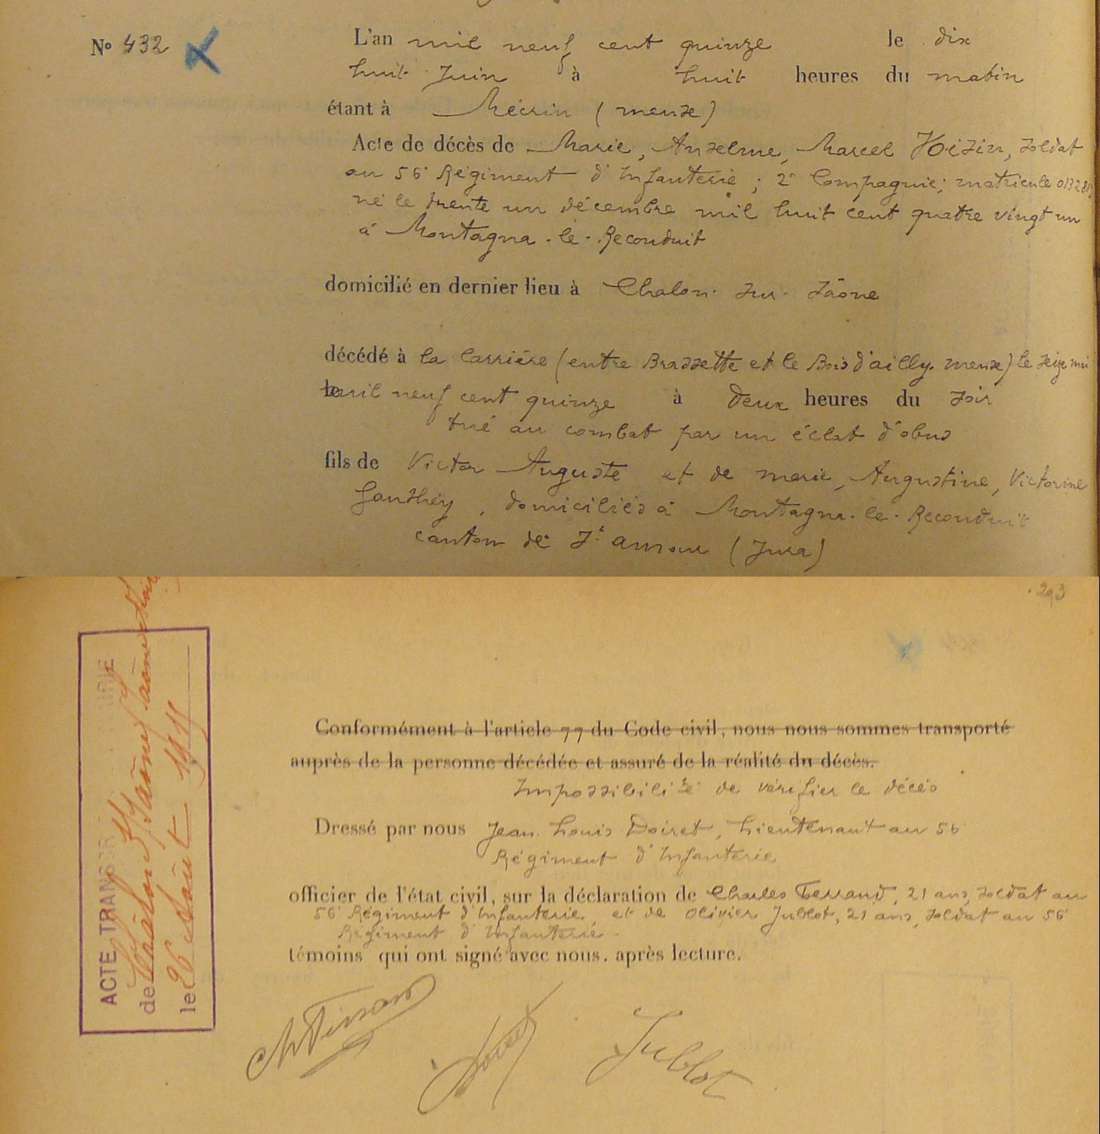 N° 432
L'an mil neuf cent quinze le dix
huit Juin à huit heures du matin
étant à Mécrin (meuse)
Acte de décès de Marie, Anselme, Marcel Hoisin, soldat
au 56e Régiment d'Infanterie ; 2e Compagnie ; matricule
né le trente un décembre mil huit cent quatre vingt un
à Montagna-le-Reconduit
domicilié en dernier lieu à Chalon-sur-Saône
décédé à la Carrière (entre Brassette et le Bois d'ailly meuse) le seize mai
mil neuf cent quinze à deux heures du soir
tué au combat par un éclat d'obus
fils de Victor Auguste et de marie, Augustine, Victorine
Gauthey, domiciliés à Montagna-le-Reconduit
canton de St amour (Jura)
293
Conformément à l'article 77 du Code civil, nous nous sommes transporté
auprès de la personne décédée et assuré de la réalité du décès.
Impossibilité de vérifier le décès
Dressé par nous Jean Louis Doiret, Lieutenant au 56
Régiment d'Infanterie
officier de l'état civil, sur la déclaration de Charles Ferrand, 21 ans, soldat au
56e Régiment d'Infanterie, et de Olivier Jullot, 21 ans, soldat au 56
Régiment d'Infanterie.
témoins qui ont signé avec nous, après lecture.
ACTE TRANSCRIT
de Châlon S/Saône Saône
le 26 Août 1915
Doiret
Jullot